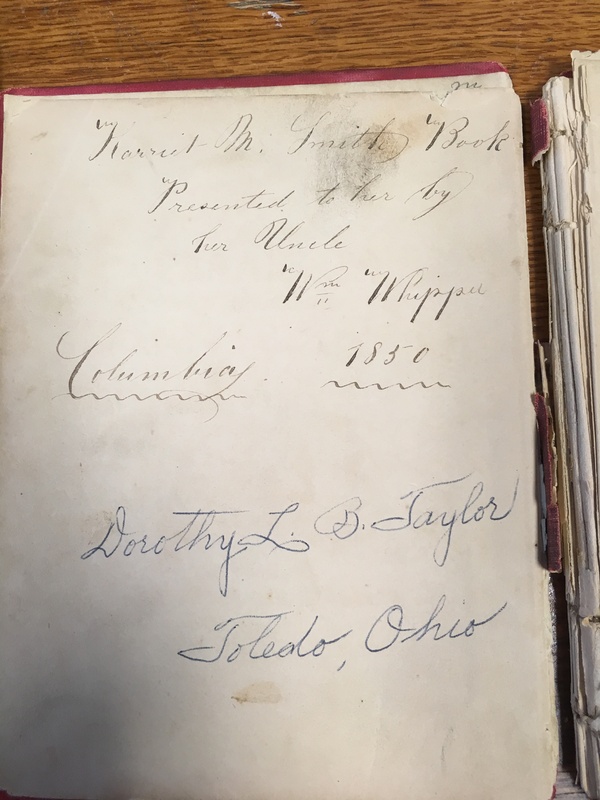 Harriet M. Smith Book
Presented to her by
her Uncle
Wm Whipper
Columbia. 1850
Dorothy L. B. Taylor
Toledo, Ohio